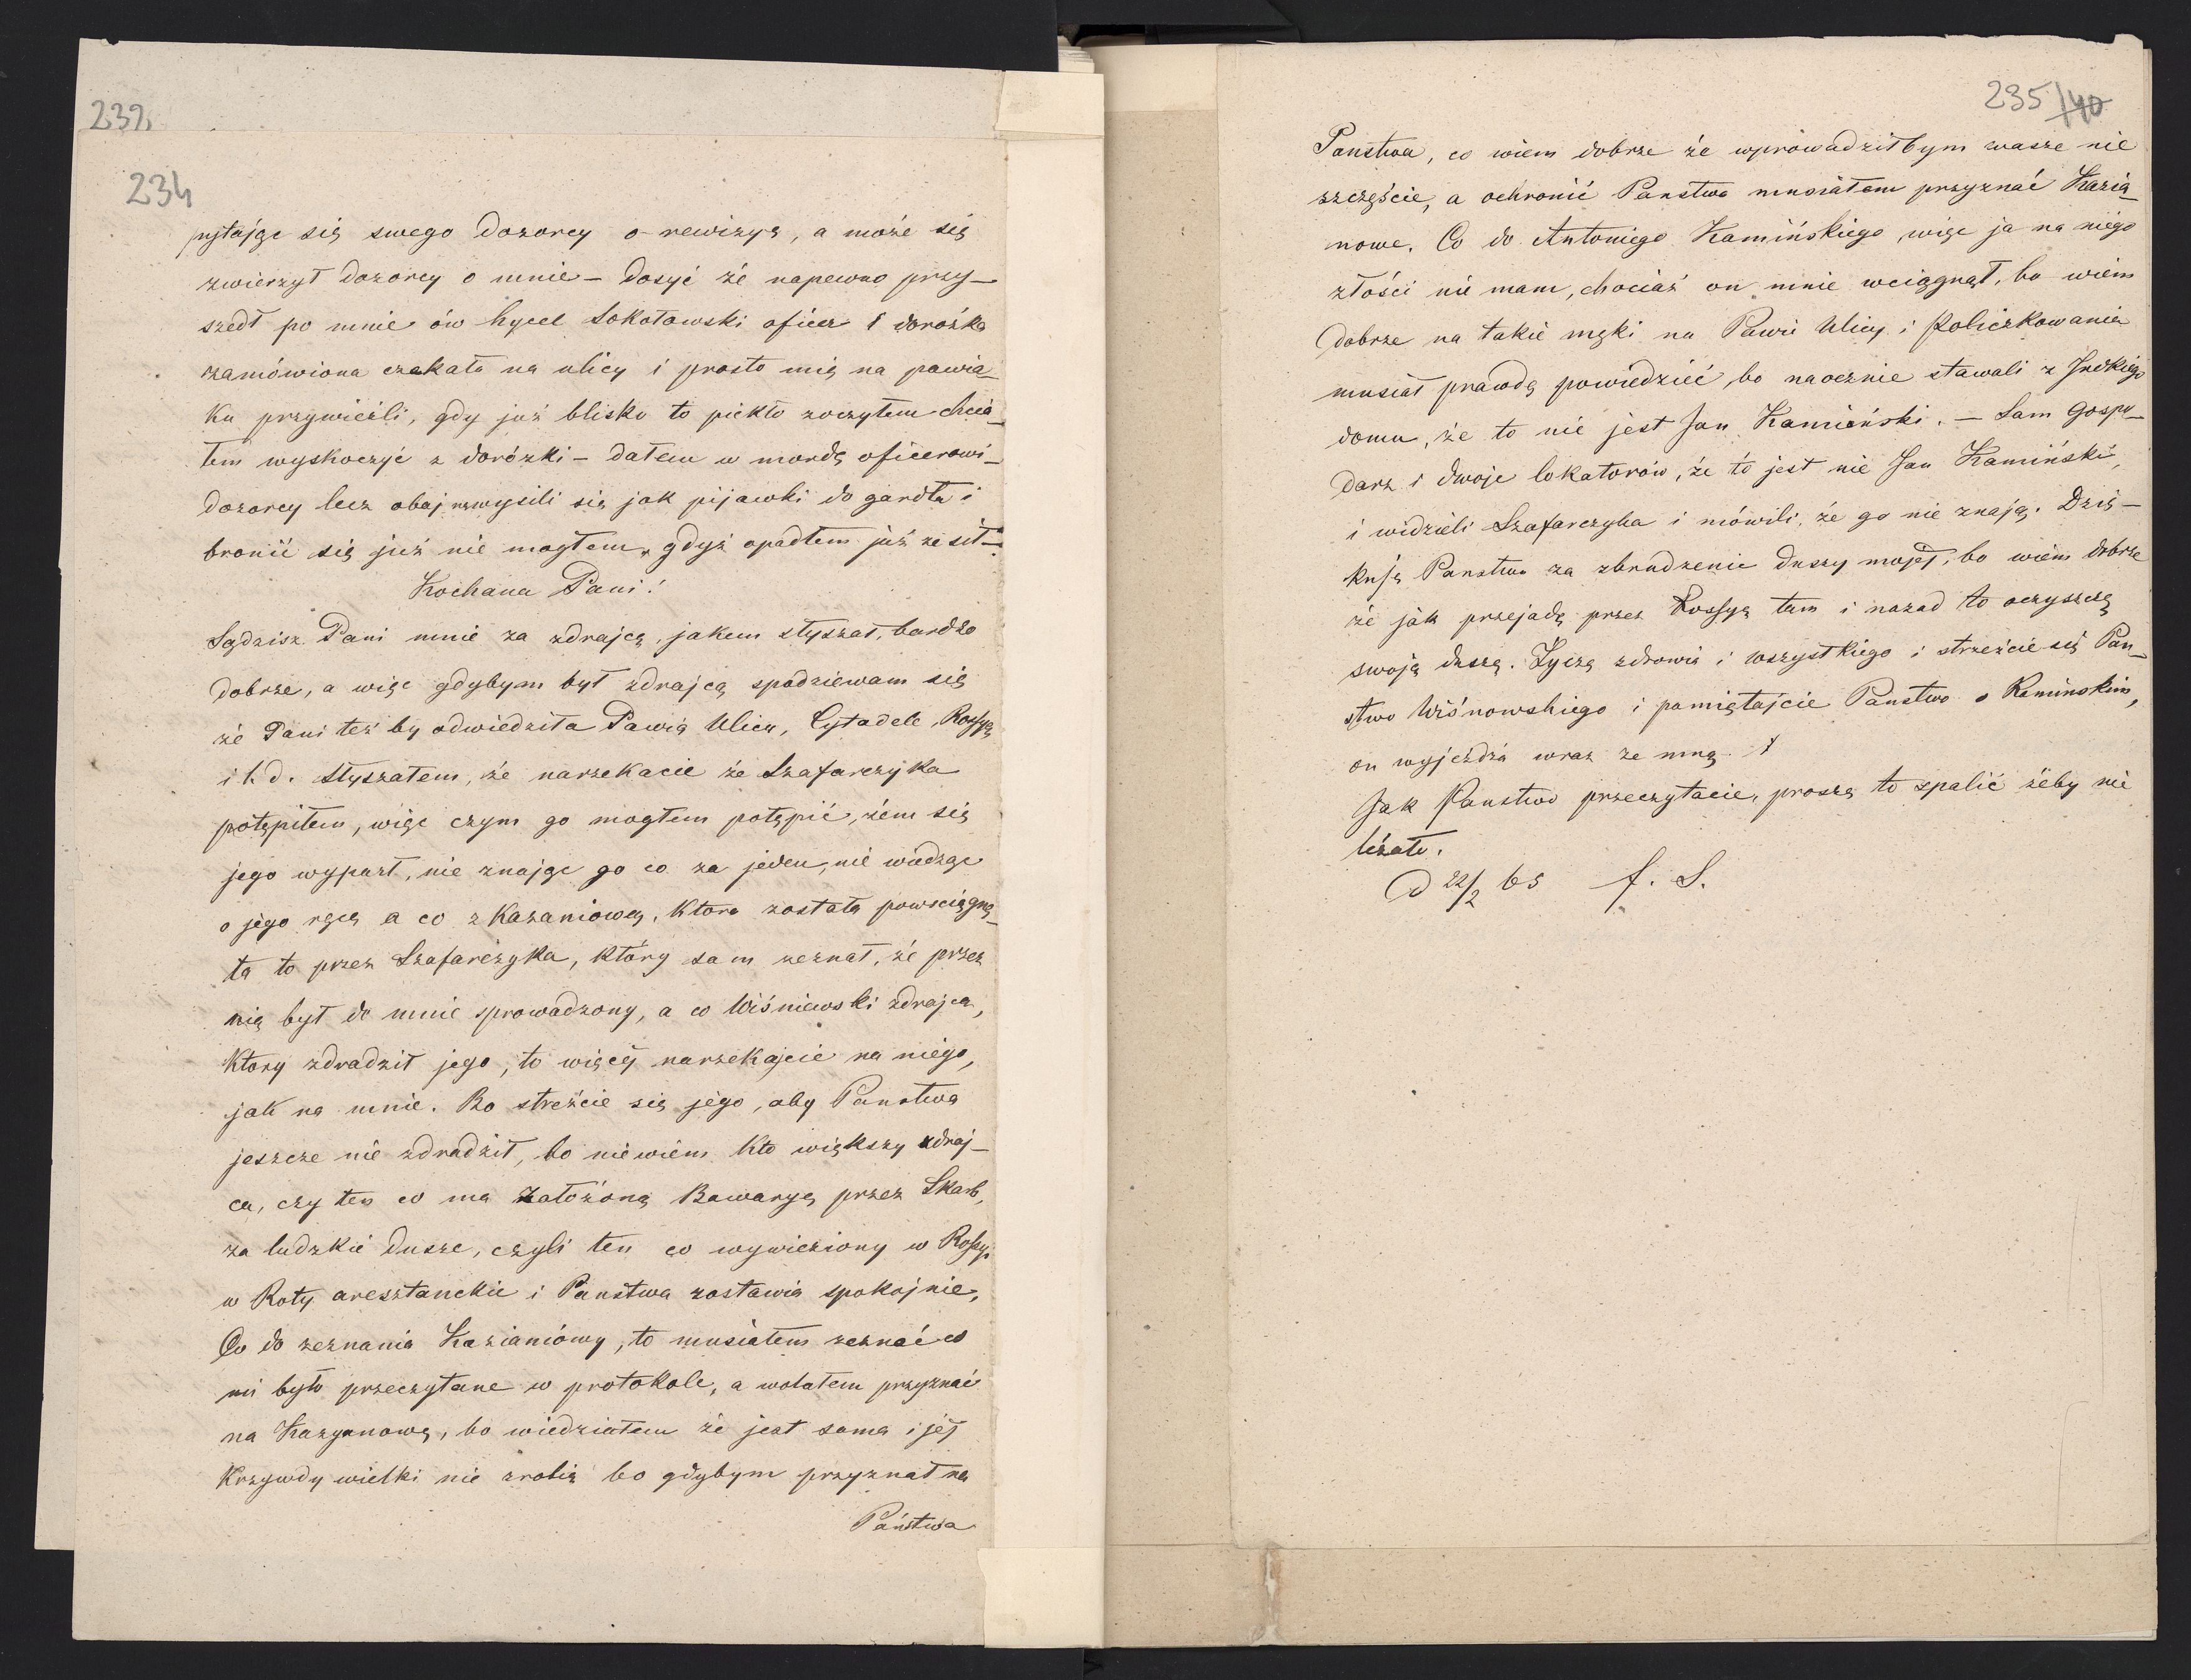 232
234
pytając się swego dozorcy o rewizyę, a może się
zwierzył dozorcy o mnie – dosyć że napewno przy–
szedł po mnie ów hycel Sokołowski oficer i dorożka
zamówiona czekała na ulicy i prosto mię na pawia–
ku przywieźli, gdy już blisko to piekło zoczyłem chcia–
łem wyskoczyć z dorózki – dałem w mordę oficerowi –
dozorcy lecz obaj się jak pijawki do gardła i
bronić się już nie mogłem, gdyż opadłem już ze sił –
Kochana Pani!
Sądzisz Pani mnie za zdrajcę, jakem słyszał, bardzo
dobrze, a więc gdybym był zdrajcą spodziewam się
że Pani też by odwiedziła Pawią Ulicu, Cytadele, Rossyą
i t. d. Słyszałem, że narzekacie że Szafarczyka
potępiłem, więc czym go mogłem potępić, żem się
jego wyparł, nie znając go co za jeden, nie wiedząc
o jego ręcę a co z Kazaniową, która została powściągnę–
ta to przez Szafarczyka, który sam zeznał, że przez
nią był do mnie sprowadzony, a co Wiśniewski zdrajca,
który zdradził jego, to więcej narzekajcie na niego,
jak na mnie. Bo streżcie się jego, aby Panstwa
jeszcze nie zdradził, bo niewiem kto większy zdraj–
ca, czy ten co ma założoną Bawaryę przez Skarb,
za ludzkie dusze, czyli ten co wywieziony w Rossyi
w Roty aresztanckie i Panstwa zostawia spokojnie,
Co do zeznania Kazianiówy, to musiałem zeznać co
mi było przeczytane w protokole, a wolałem przyznać
na Kazyanowę, bo wiedziałem że jest sama i jej
Krzywdy wielki nie zrobię bo gdybym przyznał na
Państwa
235/40
Panstwa, co wiem dobrze że wprowadziłbym wasze nie
szczęście, a ochronić Panstwa musiałem przyznać Kazia–
nowe. Co do Antoniego Kamińskiego, więc ja na niego
złości nie mam, chociaż on mnie wciągnął, bo wiem
dobrze na takie męki na Pawii Ulicy i Policzkowania
musiał prawdę powiedzieć, bo naocznie stawali z
domu, że to nie jest Jan Kamieński. – Sam Gospo–
darz i dwoje lokatorów, że to jest nie Jan Kamiński,
i widzieli Szafarczyka i mówili, że go nie znają. Dzię–
kuję Panstwu za zbrudzenie duszy mojej, bo wiem dobrze
że jak przejadę przez Rossyą tam i nazad to oczyszczę
swoję duszę. Życzę zdrowia i wszystkiego i strzeżcie się Pan–
stwo Wiśnowskiego i pamiętajcie Panstwo o Kaminskim,
on wyjeżdża wraz ze mną.
Jak Panstwo przeczytacie, proszę to spalić żeby nie
leżało.
d 22/2 65 f. S.